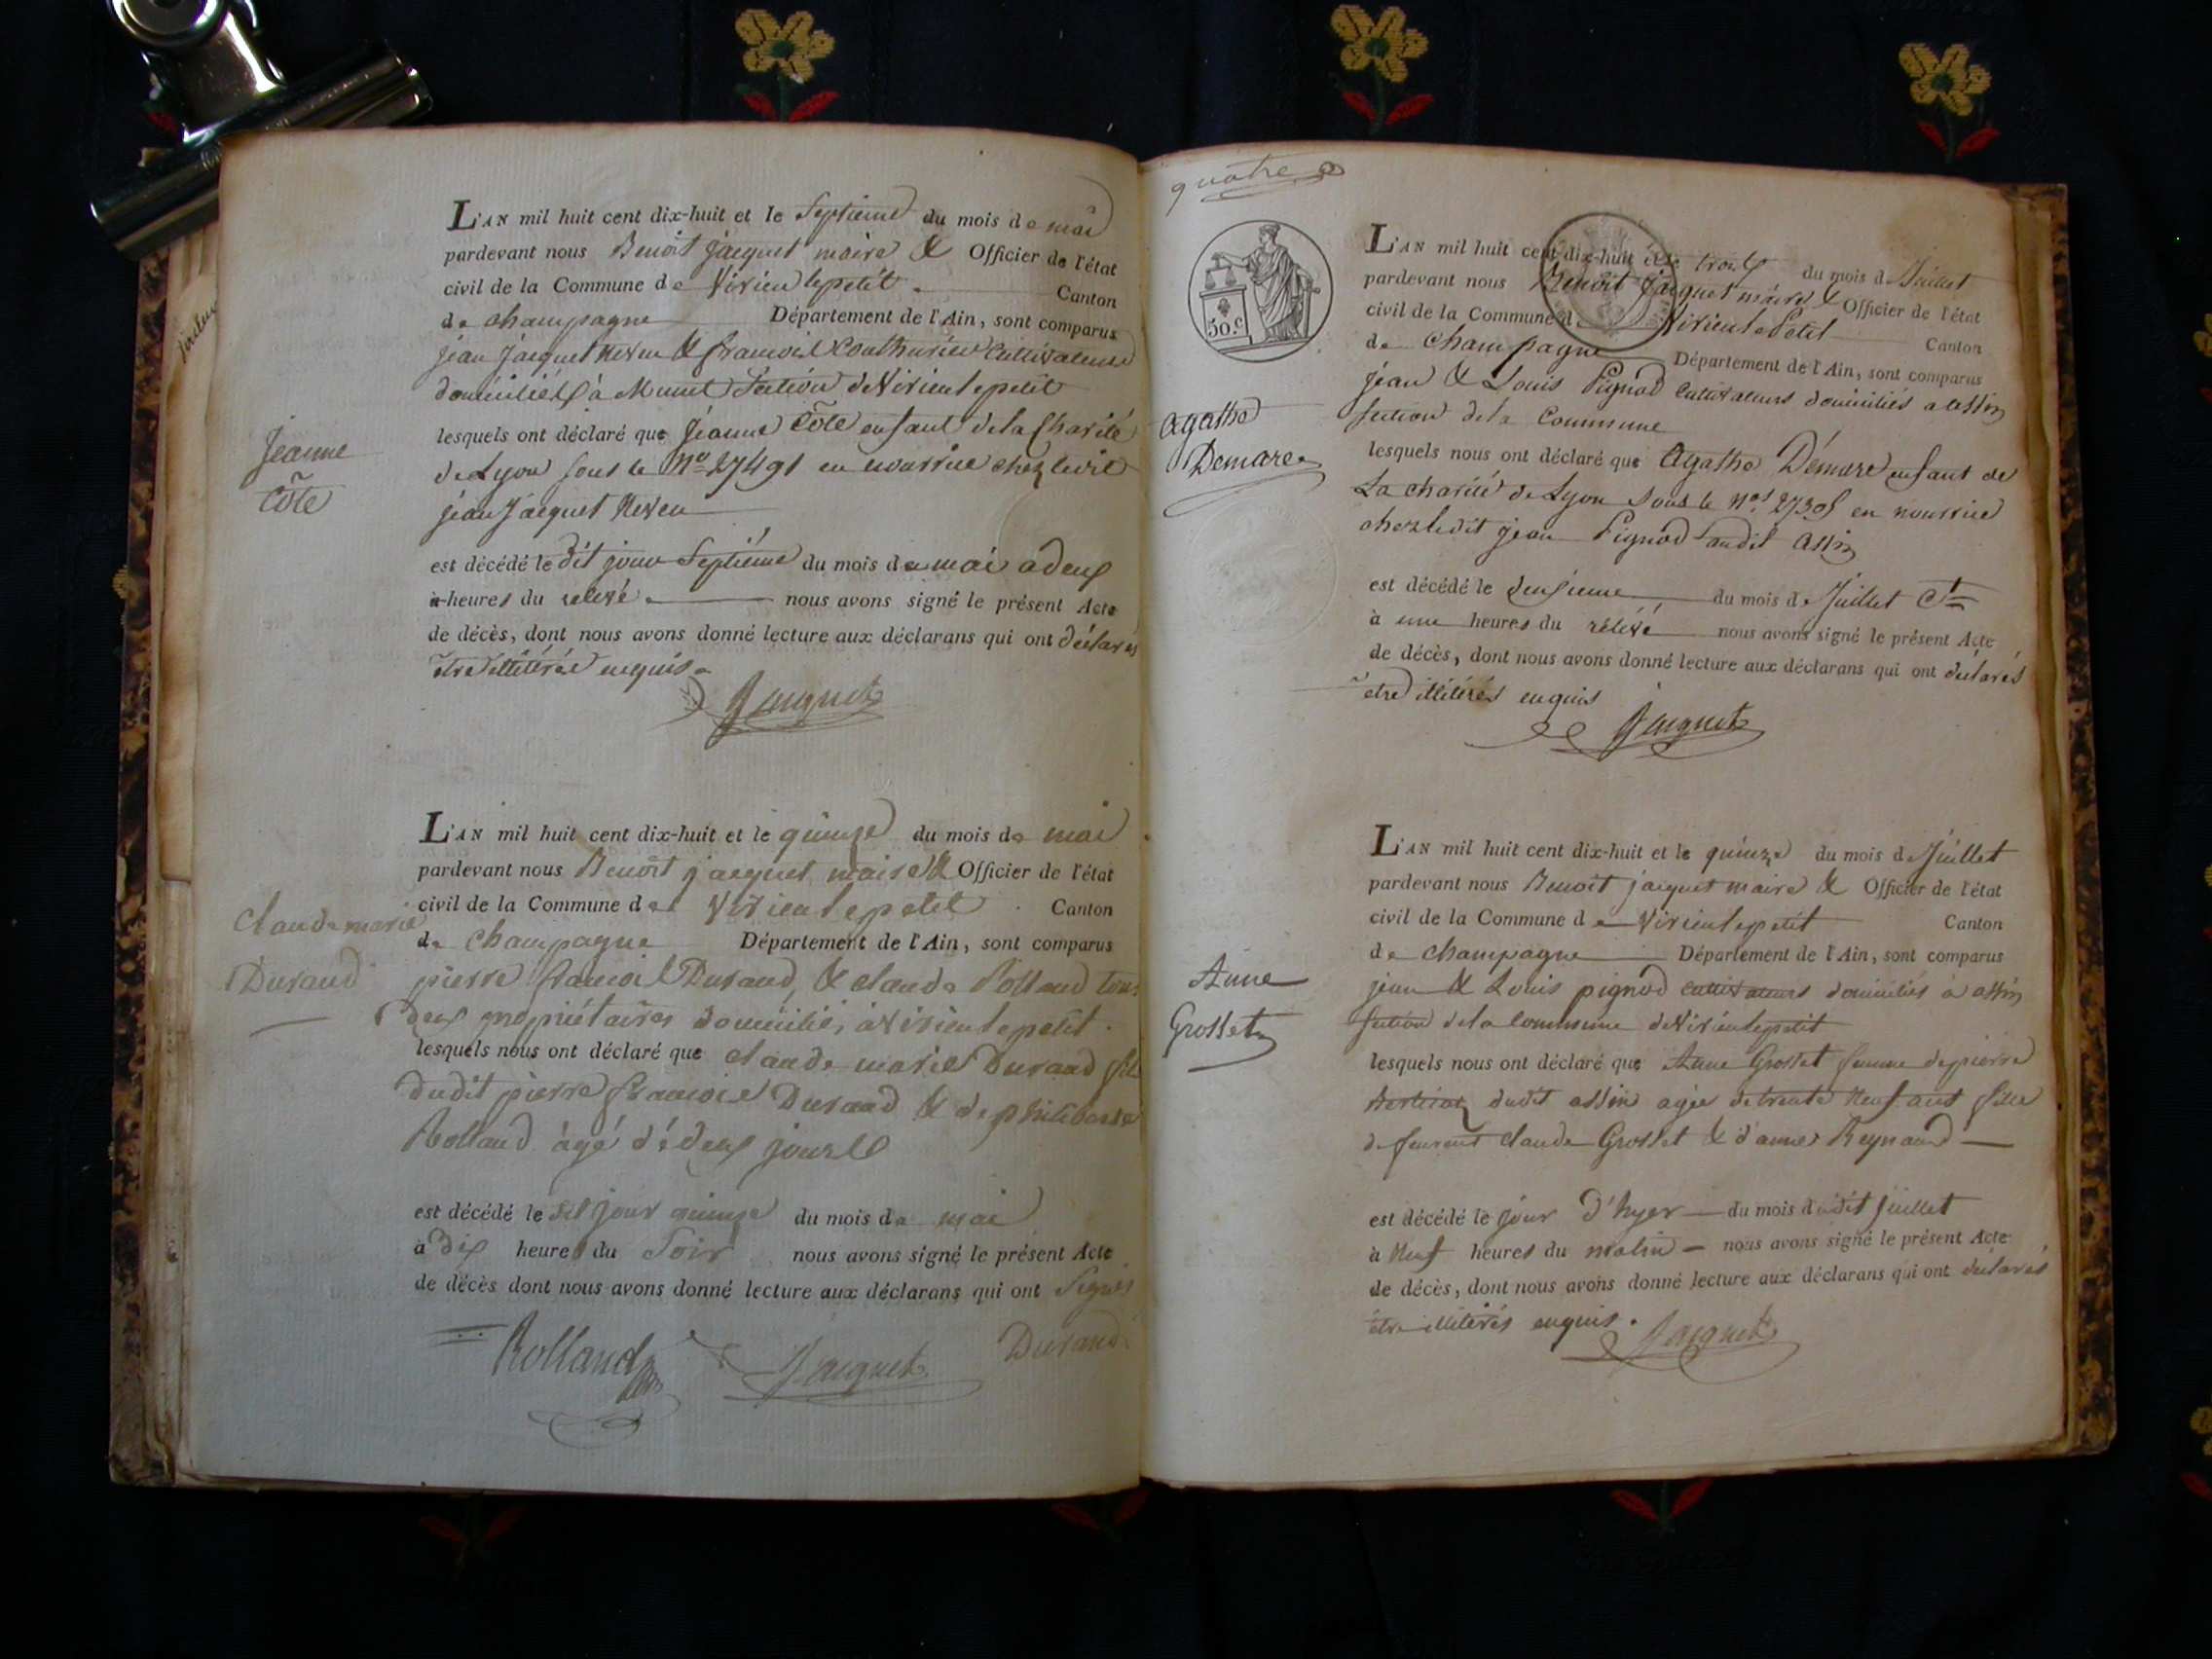 L'AN mil huit cent dix-huit et le Septieme du mois de mai
pardevant nous Benoit Jacquet maire & Officier de l'état
civil de la Commune de Virieu lepetit Canton
de champagne Département de l'Ain, sont comparus
jean Jacquet Neveu & francois Couthurier Cultivateurs
domiciliés à Munet Section de Virieu lepetit
lesquels ont déclaré que Jeanne Côte enfant de la Charité
de Lyon sous le No 27491 en nourrice chez ledit
jean Jacquet Neveu
Jeanne
Côte
est décédé le dit jour Septiéme du mois de mai a deux
à heures du relevé nous avons signé le présent Acte
de décès, dont nous avons donné lecture aux déclarans qui ont déclarés
être illitérés enquis
Jacquet
L'AN mil huit cent dix-huit et le quinze du mois de mai
pardevant nous Benoît jacquet maire & Officier de l'état
civil de la Commune de Virieu lepetit Canton
de champagne Département de l'Ain, sont comparus
claude marie
Durand
pierre francois Durand, & claude Rolland tous
deux propriétaires domiciliés à Virieu lepetit
lesquels nous ont déclaré que claude marie Durand fils
dudit pierre francois Durand & de philiberte
Rolland âgé de deux jours
est décédé le dit jour quinze du mois de mai
à dix heures du Soir nous avons signé le présent Acte
de décès dont nous avons donné lecture aux déclarans qui ont Signés
Rolland Jacquet Durand
quatre
50.c
L'AN mil huit cent dix-huit et le trois du mois de Juillet
pardevant nous Benoit Jacquet maire & Officier de l'état
civil de la Commune de Virieu lePetit Canton
de Champagne Département de l'Ain, sont comparus
jéan & Louis Pignod Cultivateurs domiciliés a assin
section de la Commune
agathe
Demare
lesquels nous ont déclaré que Agathe Démare enfant de
La charité de Lyon sous le No. en nourrice
chez ledit jean Pignod audit assin
est décédé le deusieme du mois de Juillet Ct
à une heures du rélévé nous avons signé le présent Acte
de décès, dont nous avons donné lecture aux déclarans qui ont déclarés
être illitérés enquis
Jacquet
L'AN mil huit cent dix-huit et le quinze du mois de Juillet
pardevant nous Benoît jacquet maire & Officier de l'état
civil de la Commune de Virieu lepetit Canton
de champagne Département de l'Ain, sont comparus
jean & Louis pignod cultivateurs domiciliés à assin
section de la Commune de Virieu lepetit
Anne
Grosset
lesquels nous ont déclaré que Anne Grosset femme de pierre
dudit assin agée de trente Neuf ans fille
de claude Grosset & d'anne Reynaud
est décédé le jour d'hyer du mois dudit juillet
à Neuf heures du matin nous avons signé le présent Acte
de décès, dont nous avons donné lecture aux déclarans qui ont déclarés
être illitérés enquis.
Jacquet